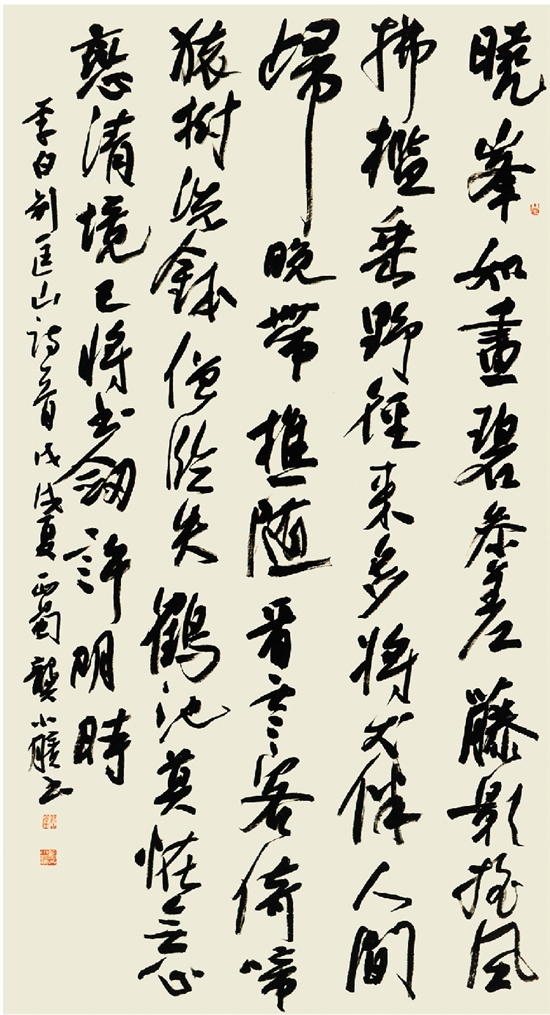 曉峯如畫碧參差藤影摇風
拂檻垂野徑來多將犬伴人間
歸晚帶樵隨看雲客倚啼
猿樹洗鉢僧臨失鶴池莫怪無心
戀清境已將書劍許明時
李白别匡山詩一首戊戌夏西蜀龔小膑書